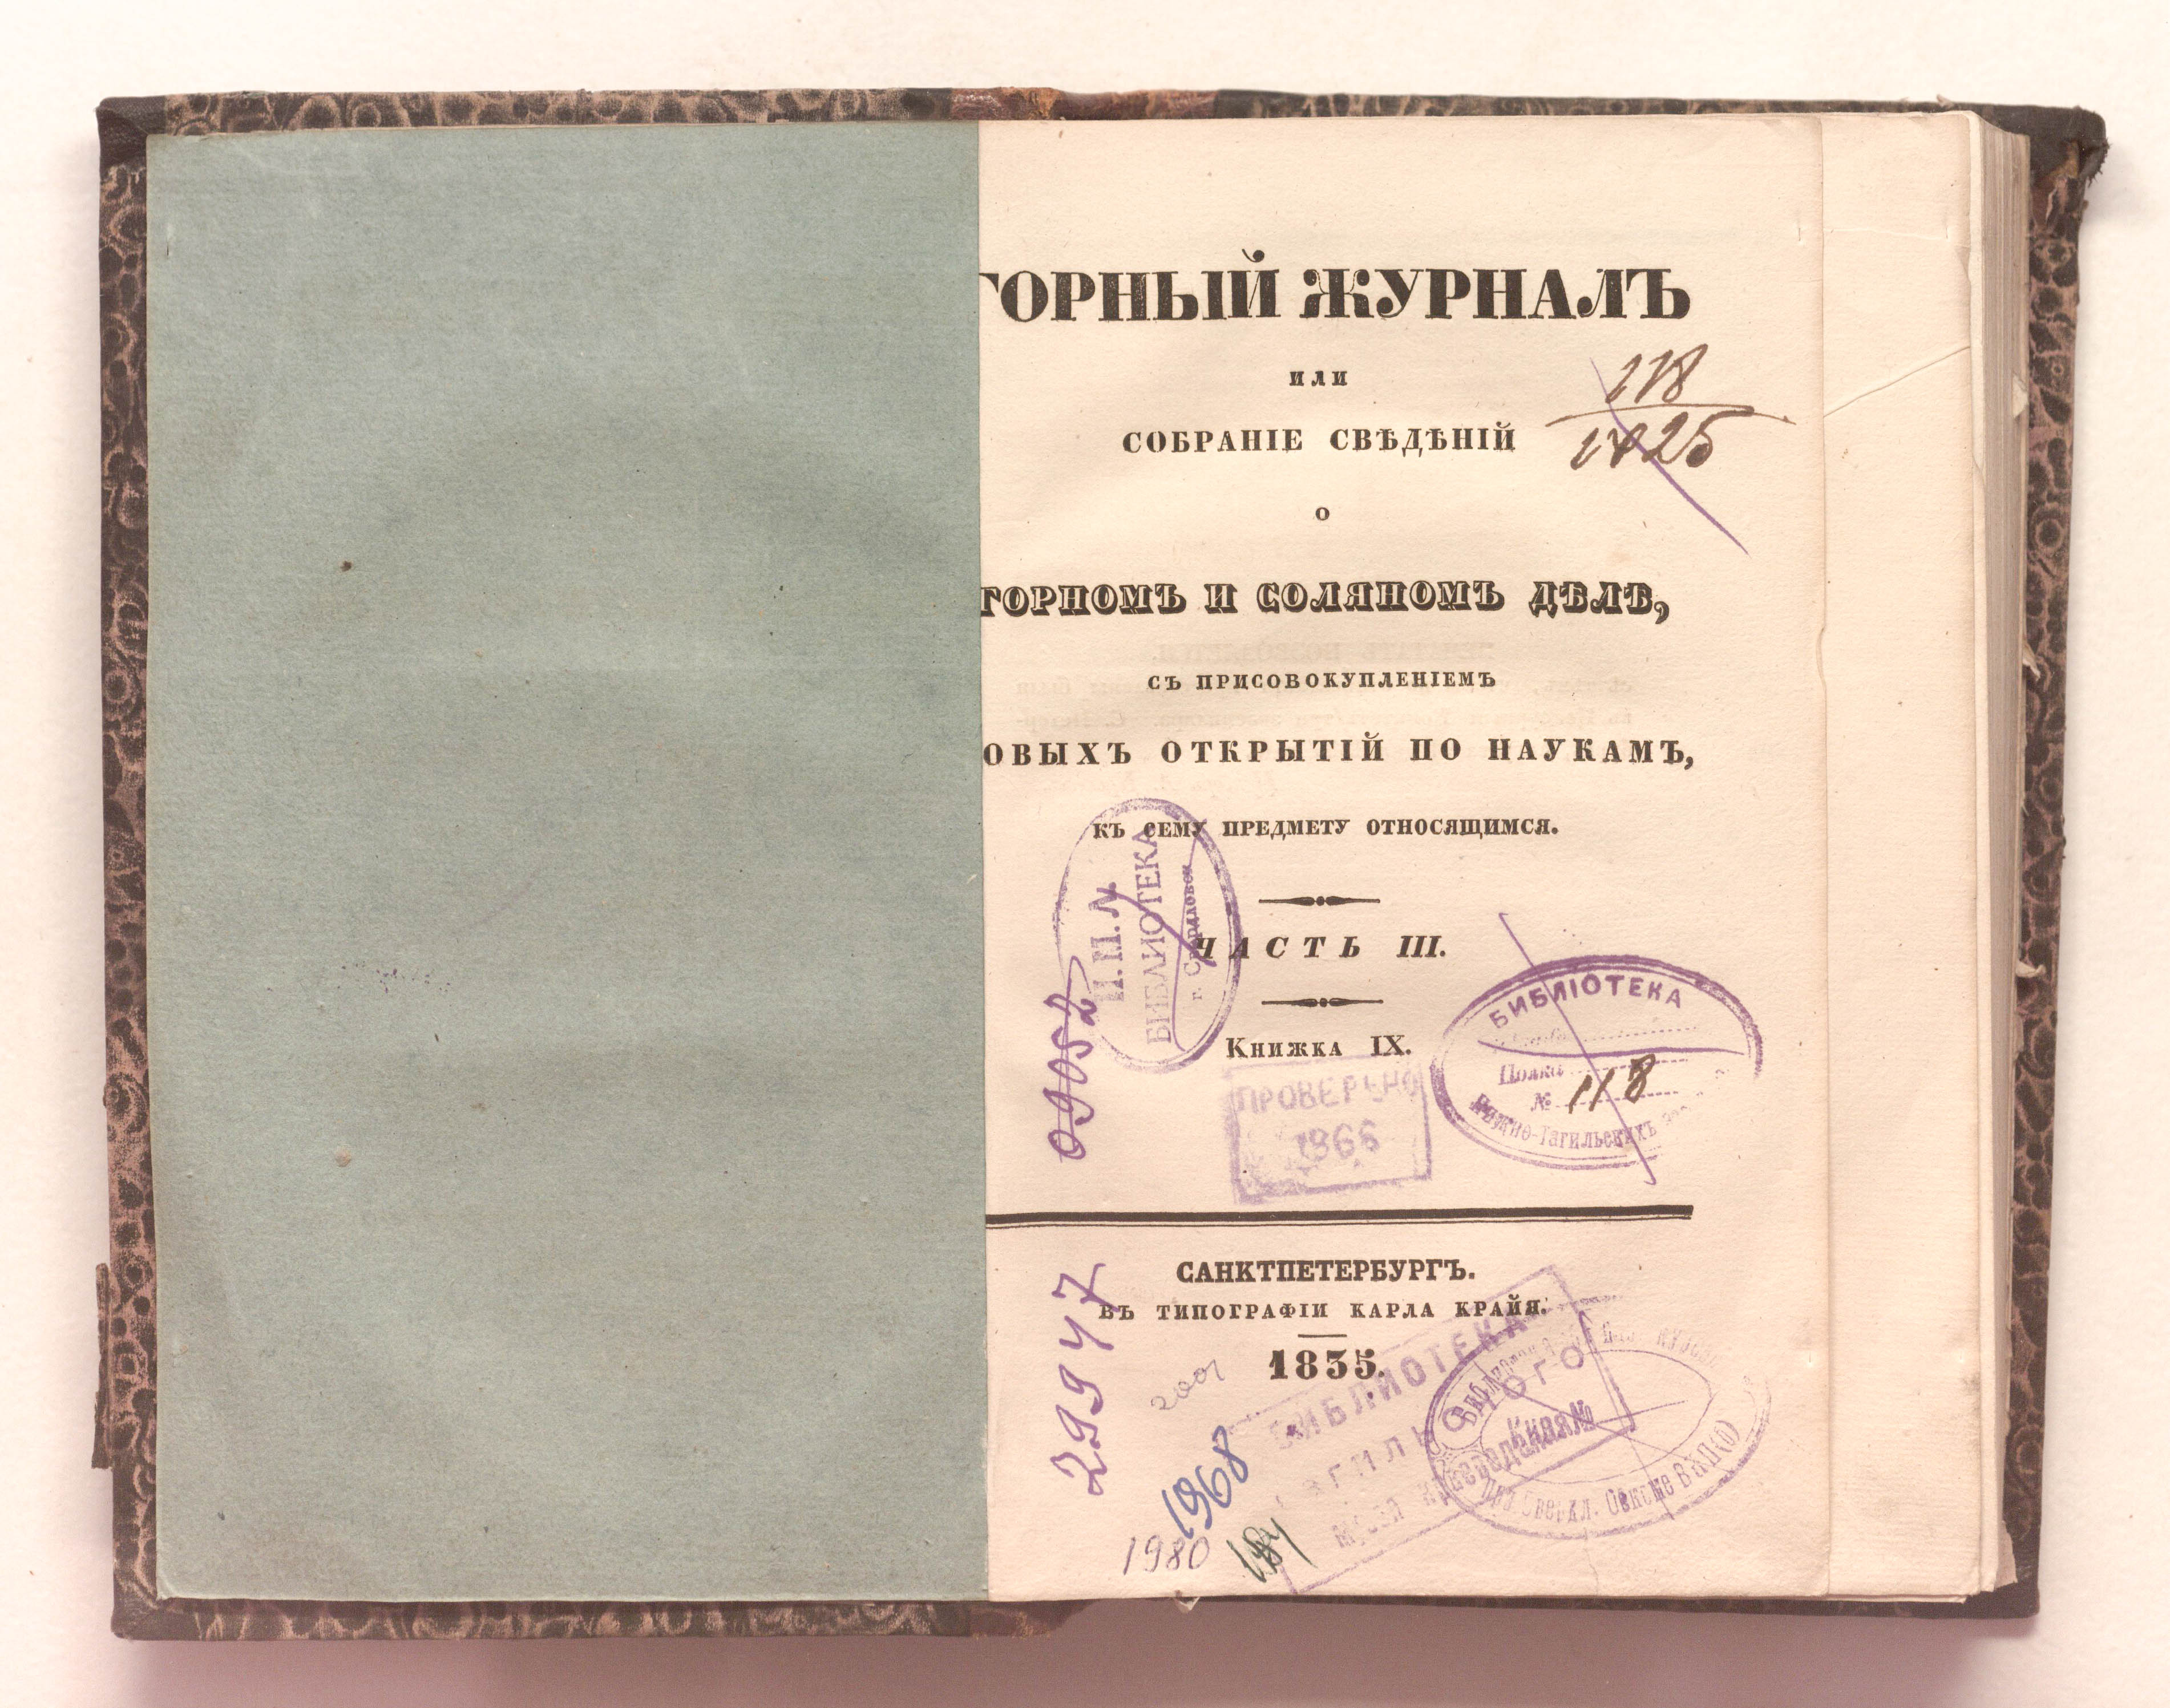 ГОРНЫЙ ЖУРНАЛЪ
или
СОБРАНІЕ СВѢДѢНІЙ
о
ГОРНОМЪ И СОЛЯНОМЪ ДѢЛѢ,
СЪ ПРИСОВОКУПЛЕНІЕМЪ
ОВЫХЪ ОТКРЫТІЙ ПО НАУКАМЪ,
КЪ СЕМУ ПРЕДМЕТУ ОТНОСЯЩИМСЯ.
ЧАСТЬ III.
Книжка IX.
САНКТПЕТЕРБУРГЪ.
ВЪ ТИПОГРАФІИ КАРЛА КРАЙЯ.
1835.
118
1825
БИБЛИОТЕКА
г. Свердловск
09052
БИБЛІОТЕКА
Полка
№ 118
Нижне-Тагильскихъ
ПРОВЕРЕНО
1966
29947
2001
1968
1980
184
БИБЛИОТЕКА